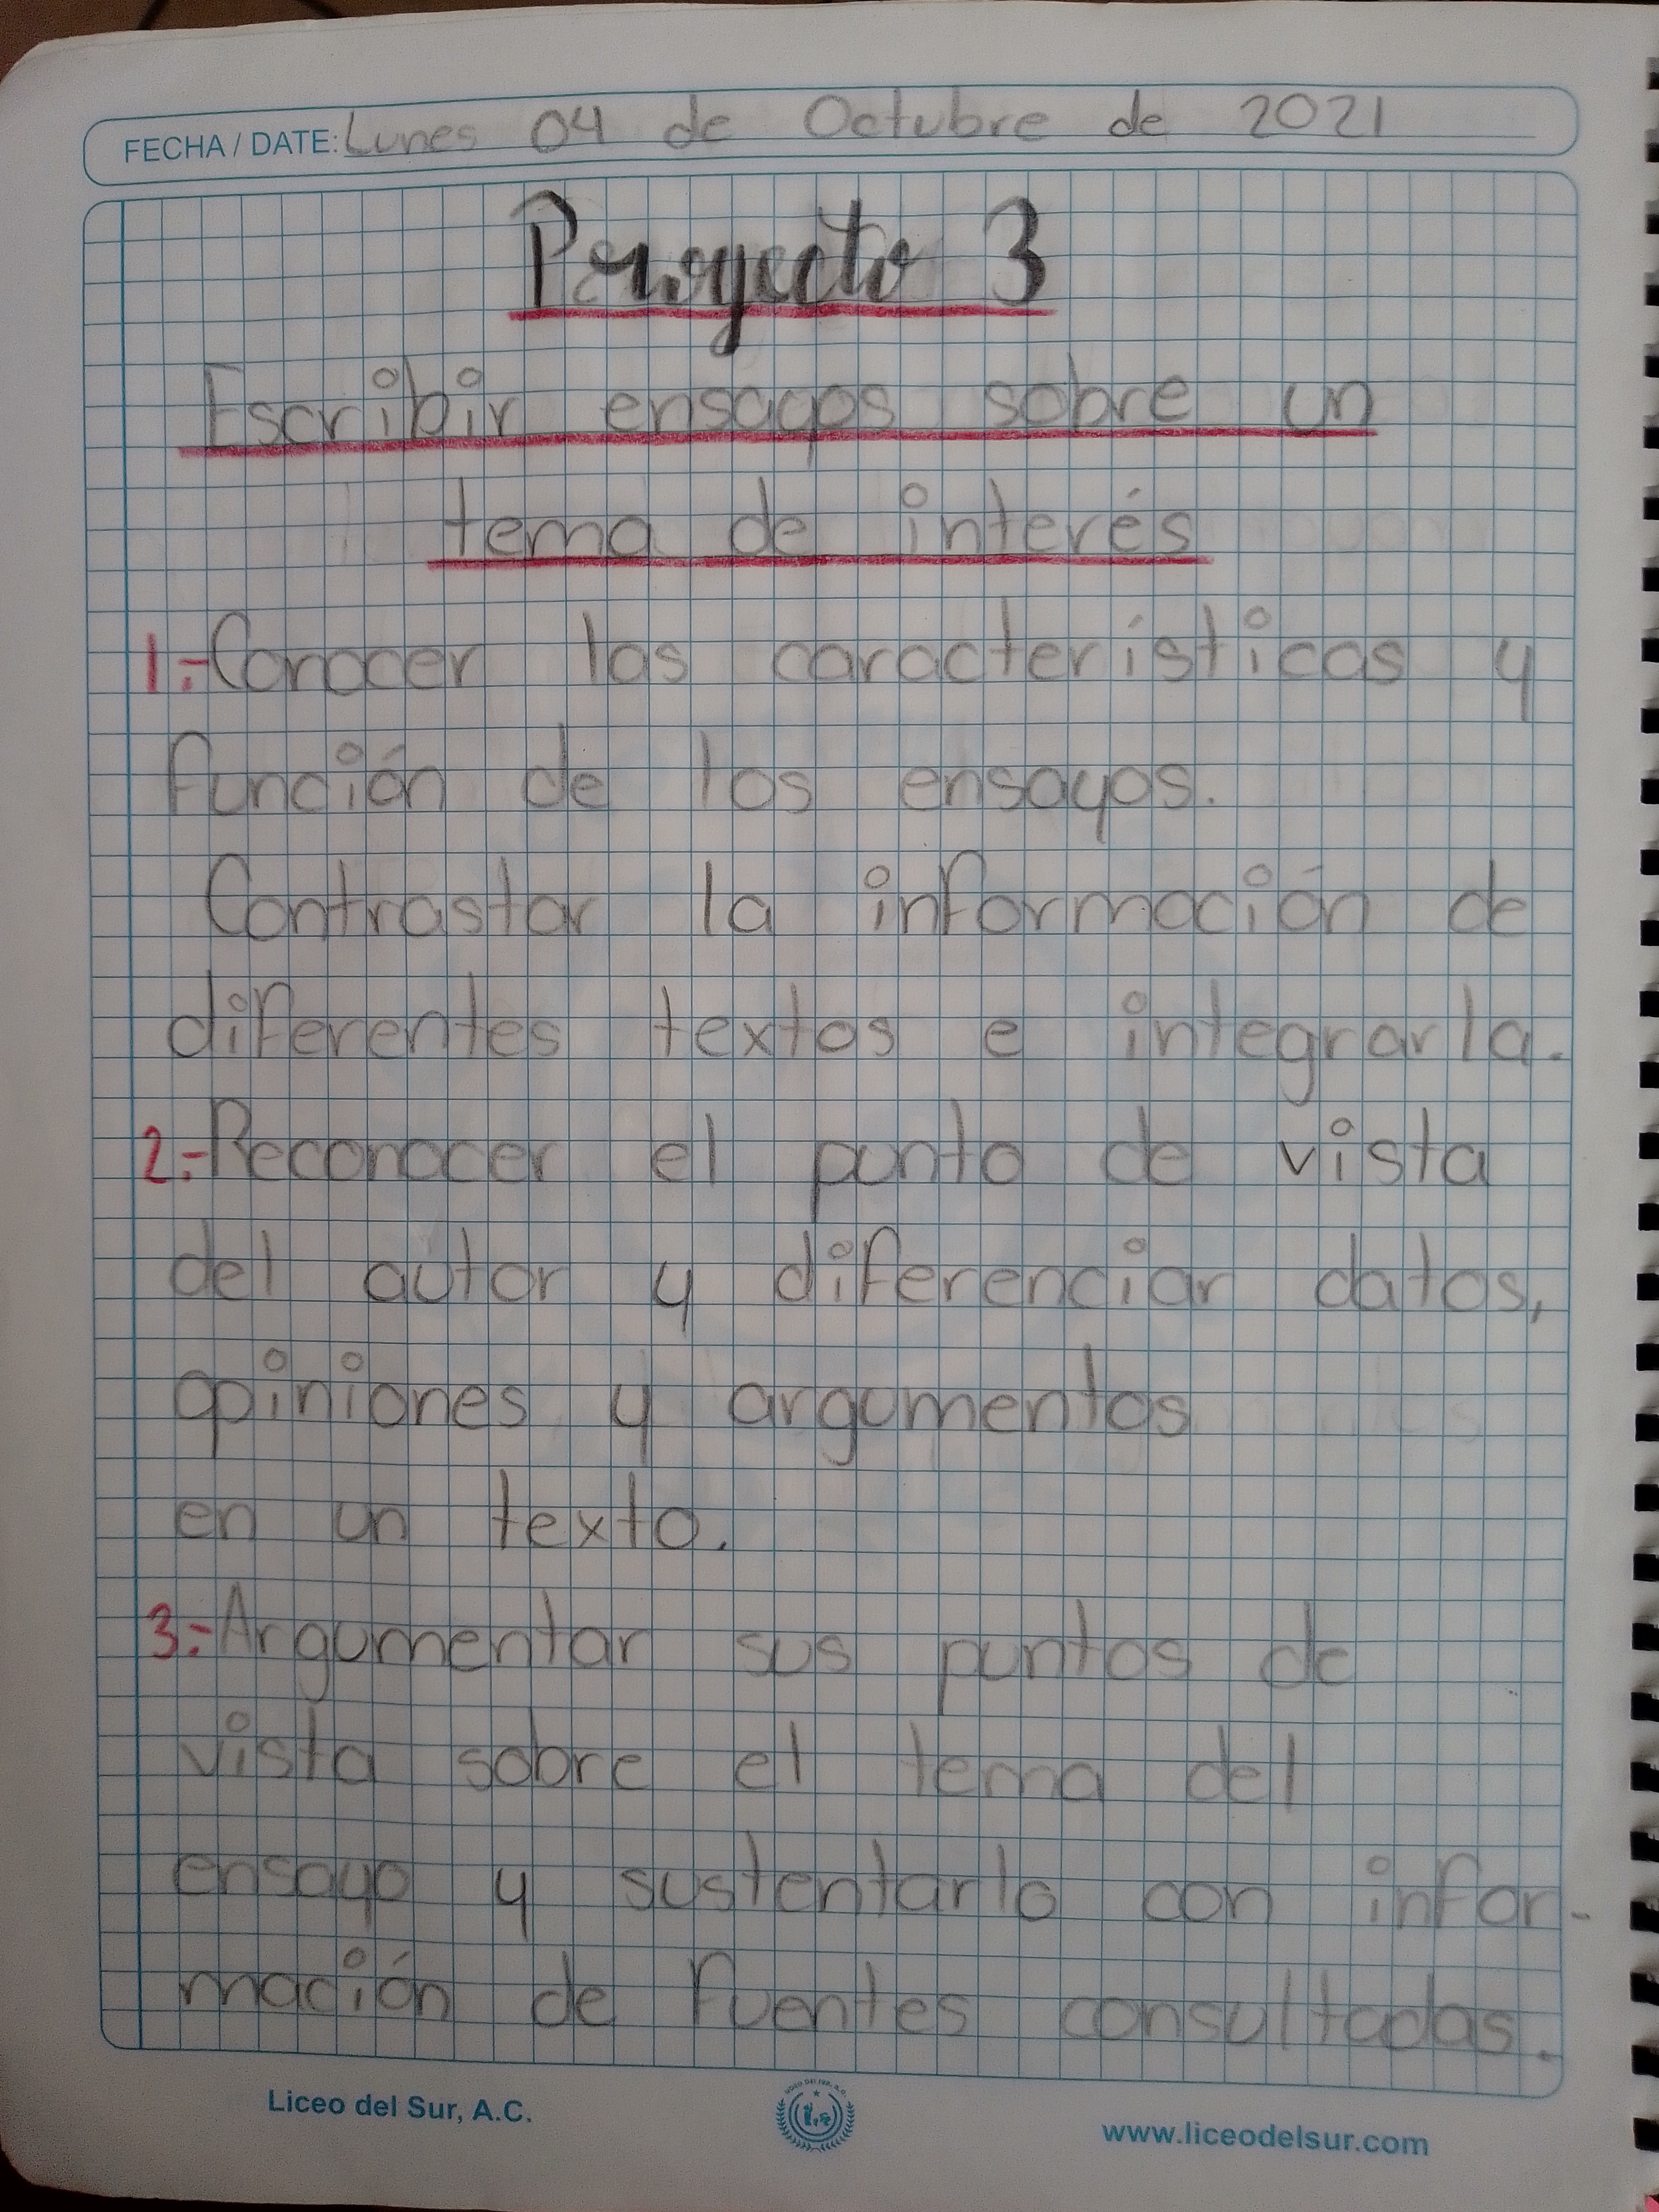 FECHA / DATE: Lunes 04 de Octubre de 2021
Proyecto 3
Escribir ensayos sobre un
tema de interés
1.- Conocer las características y
función de los ensayos.
Contrastar la información de
diferentes textos e integrarla.
2.- Reconocer el punto de vista
del autor y diferenciar datos,
opiniones y argumentos
en un texto.
3.- Argumentar sus puntos de
vista sobre el tema del
ensayo y sustentarlo con infor-
mación de fuentes consultadas.
Liceo del Sur, A.C.
www.liceodelsur.com